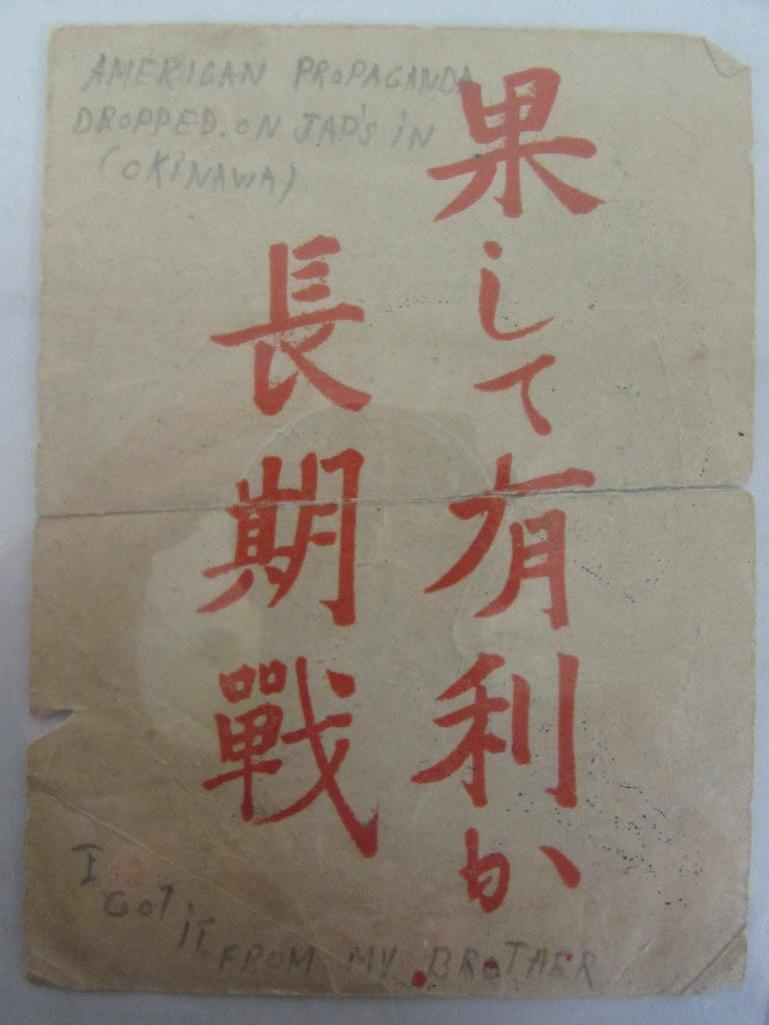 AMERICAN PROPAGANDA
DROPPED. ON JAP'S IN
(OKINAWA)
果して有利か
長期戰
I GOT IT FROM MY BROTHER